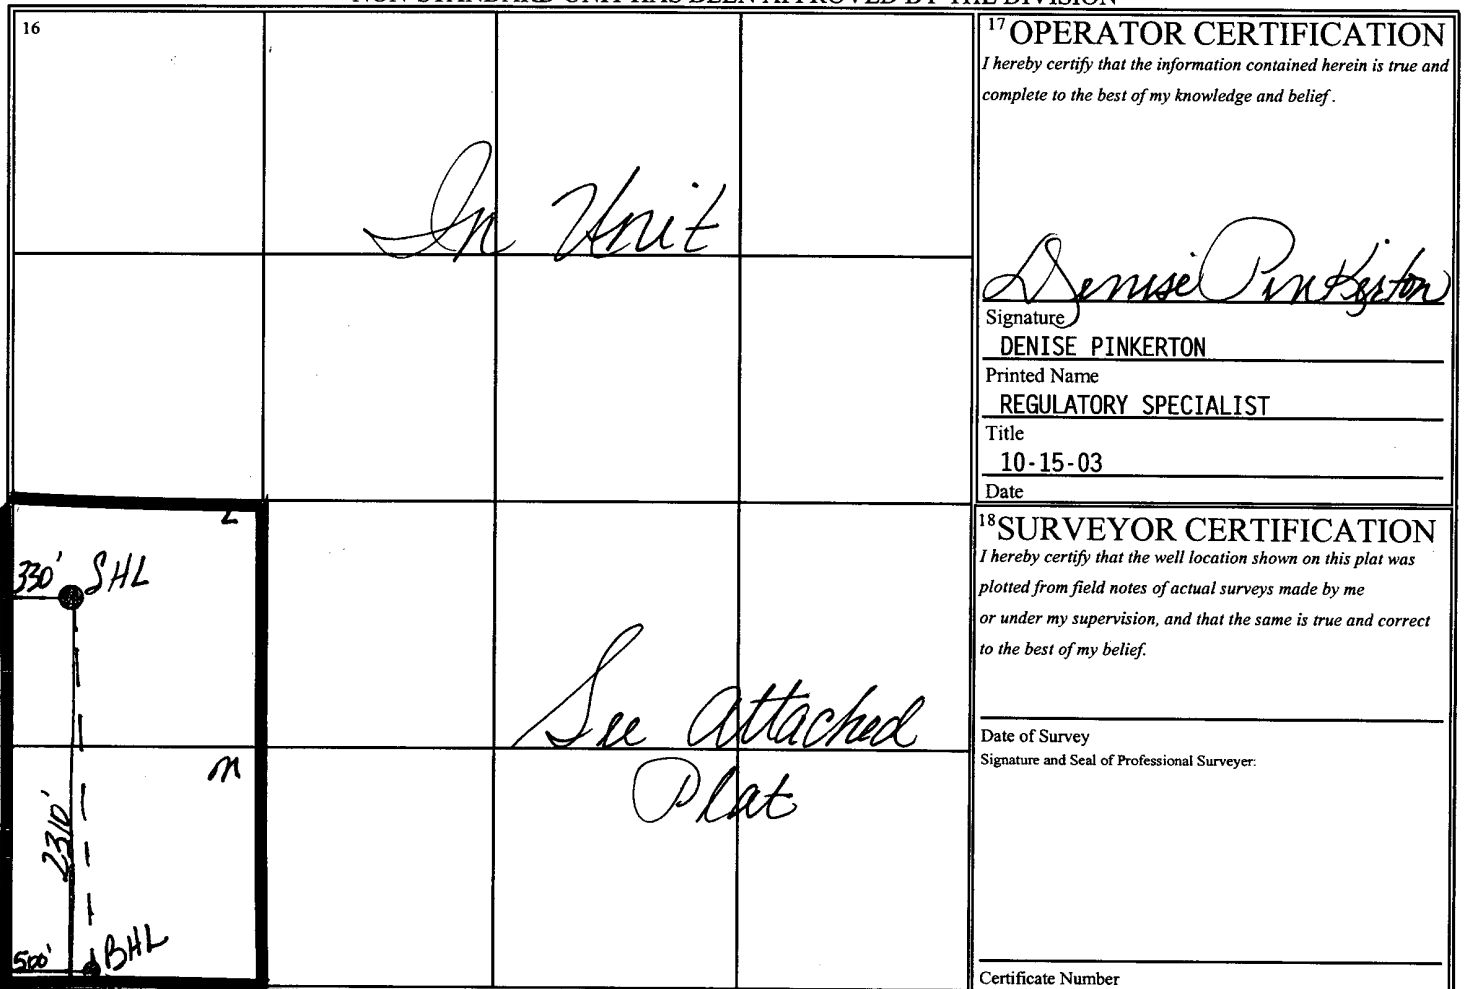 NON-STANDARD UNIT HAS BEEN APPROVED BY THE DIVISION
16
In Unit
L
330' SHL
See attached
Plat
M
2310'
500' BHL
17 OPERATOR CERTIFICATION
I hereby certify that the information contained herein is true and
complete to the best of my knowledge and belief.
Denise Pinkerton
Signature
DENISE PINKERTON
Printed Name
REGULATORY SPECIALIST
Title
10-15-03
Date
18 SURVEYOR CERTIFICATION
I hereby certify that the well location shown on this plat was
plotted from field notes of actual surveys made by me
or under my supervision, and that the same is true and correct
to the best of my belief.
Date of Survey
Signature and Seal of Professional Surveyer:
Certificate Number